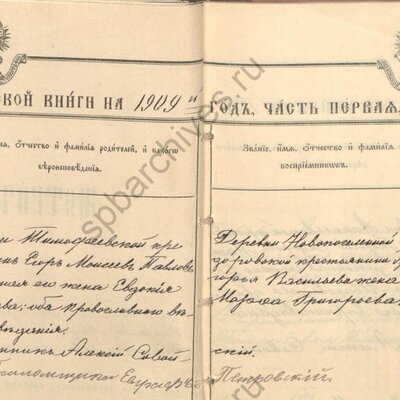 СКОЙ КНИГИ НА 1909 й
ГОДЪ, ЧАСТЬ ПЕРВАЯ,
мя, отчество и фамилія родителей, и какого
вѣроисповѣданія.
Званіе, имя, отчество и фамилія
воспріемниковъ.
Тимофеевской
Егоръ Моисеевъ Павловъ
его жена Евдокія
ва; оба Православнаго вѣ
вѣданія.
Алексій
Псаломщикъ
Деревни Новопоселенной
доровской крестьянина
горья Васильева жена
Марѳа Григорьева.
скій.
Петровскій
spbarchives.ru